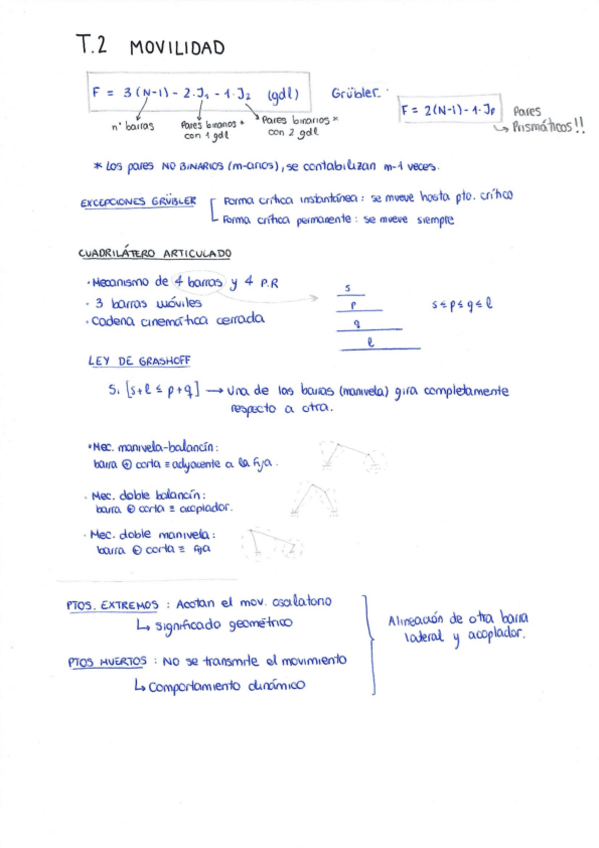 T.2 MOVILIDAD
F = 3(N-1) - 2·J₁ - 1·J₂ (gdl) Grübler.
n° barras
Pares binarios * con 1 gdl
Pares binarios * con 2 gdl
F = 2(N-1) - 1·Jp Pares
↳ Prismáticos!!
* Los pares NO BINARIOS (m-arios), se contabilizan m-1 veces.
EXCEPCIONES GRÜBLER
Forma crítica instantánea: se mueve hasta pto. crítico
Forma crítica permanente: se mueve siempre
CUADRILÁTERO ARTICULADO
· Mecanismo de 4 barras y 4 P.R
· 3 barras móviles
· Cadena cinemática cerrada
s
p
q
l
s≤p≤q≤l
LEY DE GRASHOFF
Si [s+l ≤ p+q] → Una de las barras (manivela) gira completamente
respecto a otra.
·Mec. manivela-balancín:
barra ⊕ corta ≡ adyacente a la fija.
· Mec. doble balancín:
barra ⊕ corta ≡ acoplador.
· Mec. doble manivela:
barra ⊕ corta ≡ fija
PTOS. EXTREMOS : Acotan el mov. oscilatorio
↳ significado geométrico
PTOS MUERTOS : No se transmite el movimiento
↳ Comportamiento dinámico
Alineación de otra barra
lateral y acoplador.